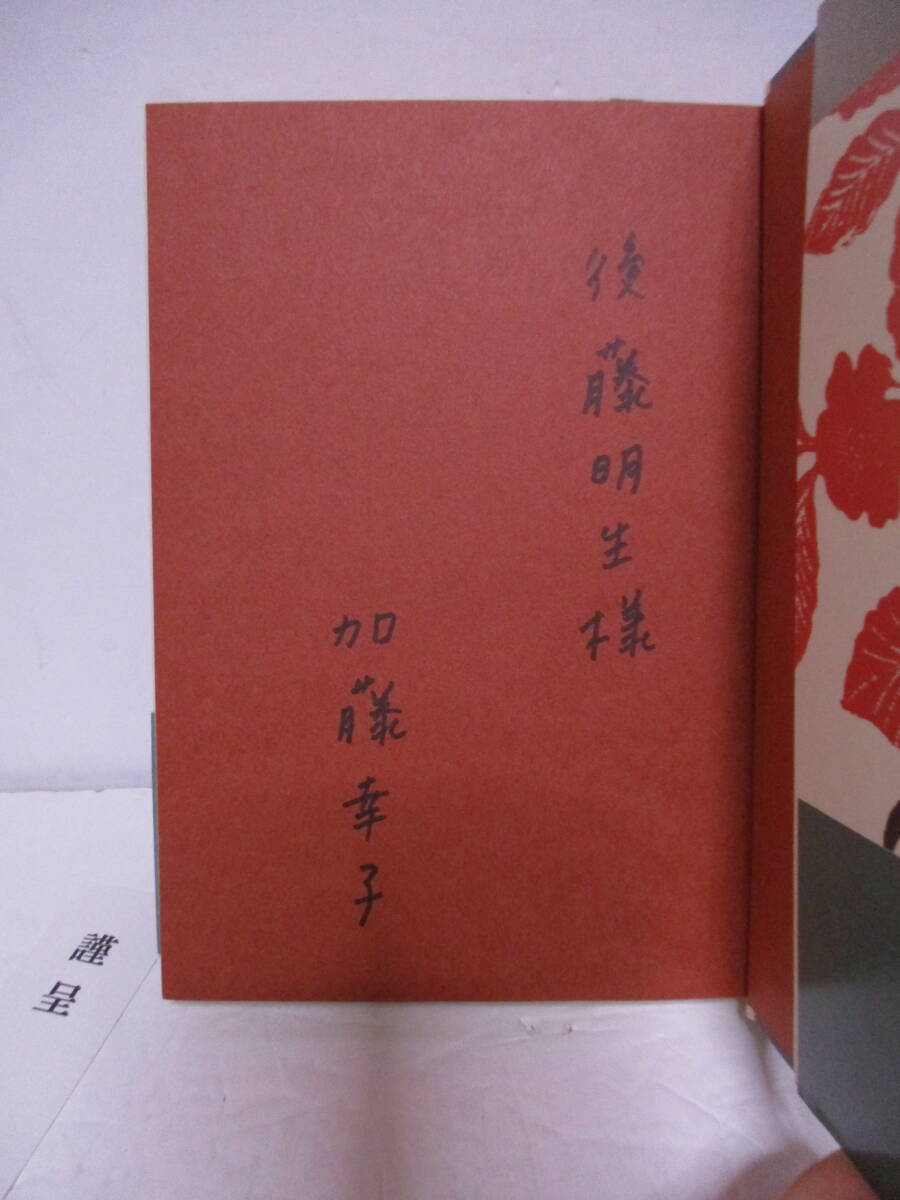 後藤明生様
加藤幸子
謹呈